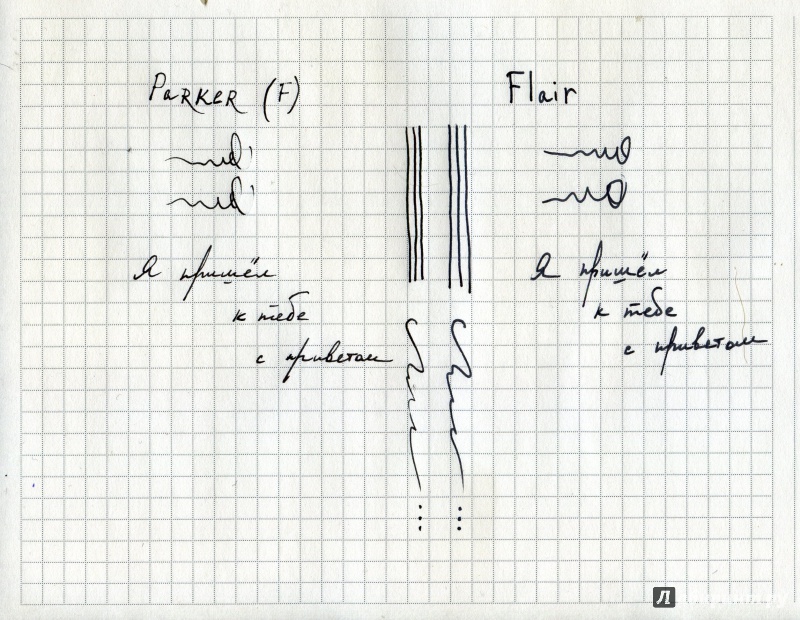 Parker (F)
Я пришёл
к тебе
с приветом
Flair
Я пришёл
к тебе
с приветом